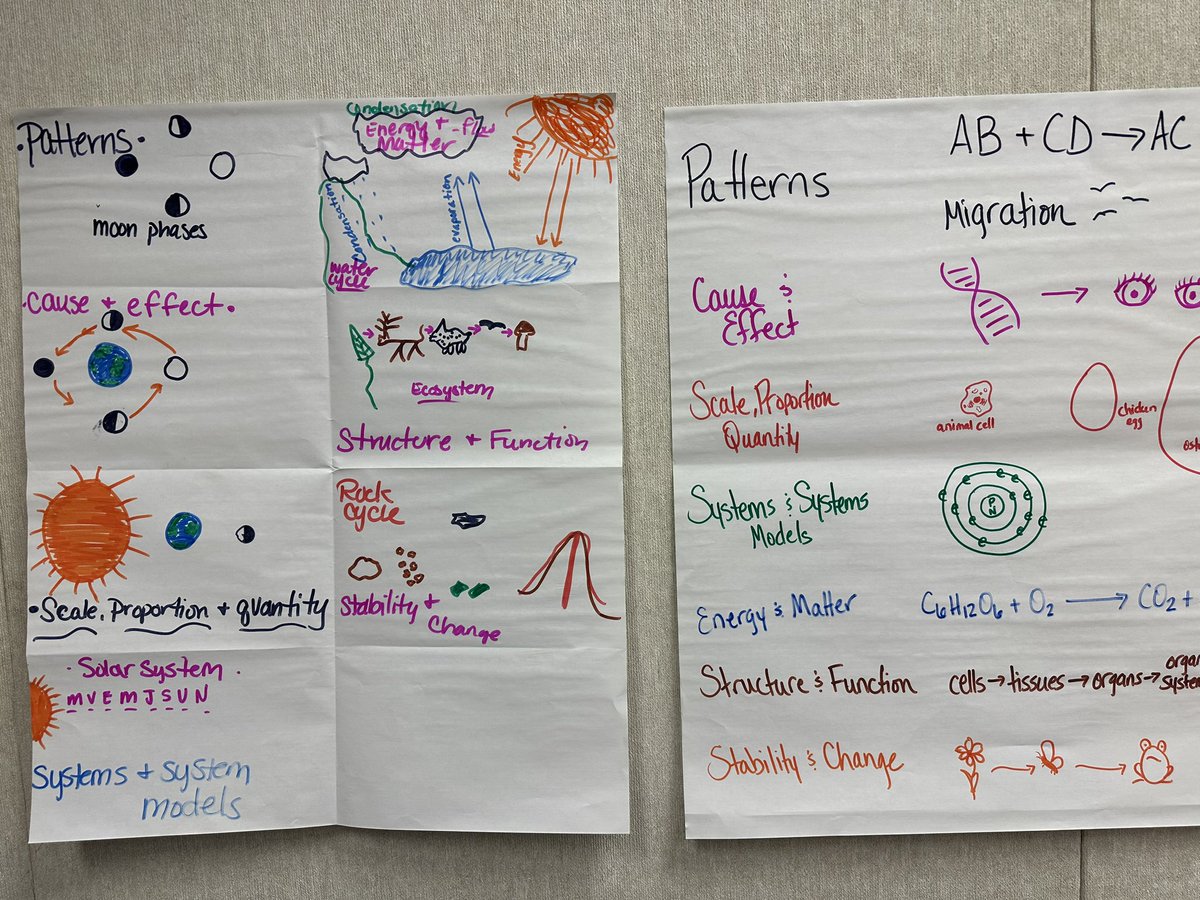 • Patterns •
moon phases
• Cause + effect •
• Scale, Proportion + quantity
• Solar System •
M V E M J S U N
Systems + system
models
Condensation
Energy +
Matter
Energy
Condensation
evaporation
water
cycle
Ecosystem
Structure + Function
Rock
Cycle
Stability +
Change
Patterns
AB + CD → AC
Migration
Cause &
Effect
Scale, Proportion
Quantity
animal cell
chicken
egg
Systems & Systems
Models
P
N
e e e e e e e e e
Energy & Matter
C6H12O6 + O2 → CO2 +
Structure & Function
cells → tissues → organs →
Stability & Change